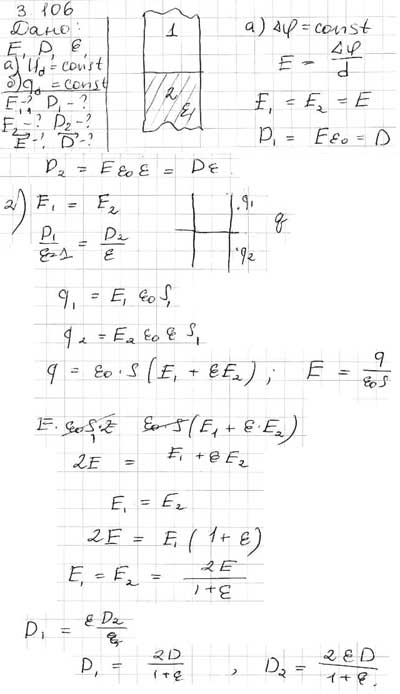 3.106
Дано:
E, D, ε,
а) U₀ = const
б) q₀ = const
E₁-? D₁-?
E₂-? D₂-?
E-? D-?
1
2 ε₁
а) Δφ = const
E = Δφ/d
E₁ = E₂ = E
D₁ = Eε₀ = D
D₂ = Eε₀ε = Dε.
2) E₁ = E₂
D₁/ε=1 = D₂/ε
q₁
q₂
q
q₁ = E₁ε₀S₁
q₂ = E₂ε₀εS₁
q = ε₀·S(E₁ + εE₂); E = q/ε₀S
E·ε₀S₁·2 ε₀S(E₁ + ε·E₂)
2E = E₁ + εE₂
E₁ = E₂
2E = E₁(1+ε)
E₁ = E₂ = 2E/1+ε
D₁ = εD₂/ε₂
D₁ = 2D/1+ε, D₂ = 2εD/1+ε.